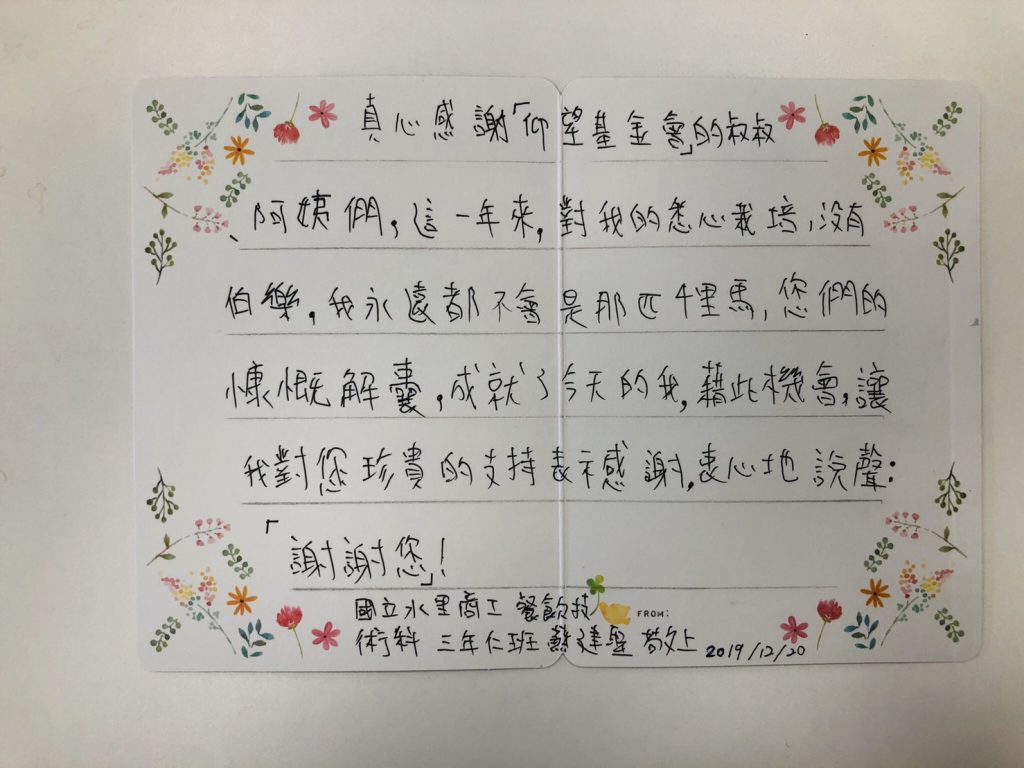 真心感謝「仰望基金會」的叔叔
、阿姨們,這一年來,對我的悉心栽培,沒有
伯樂,我永遠都不會是那匹千里馬,您們的
慷慨解囊,成就了今天的我,藉此機會,讓
我對您珍貴的支持表示感謝,衷心地說聲:
「謝謝您」!
國立水里商工 餐飲技
FROM:
術科 三年仁班 蘇建聖 敬上 2019/12/20